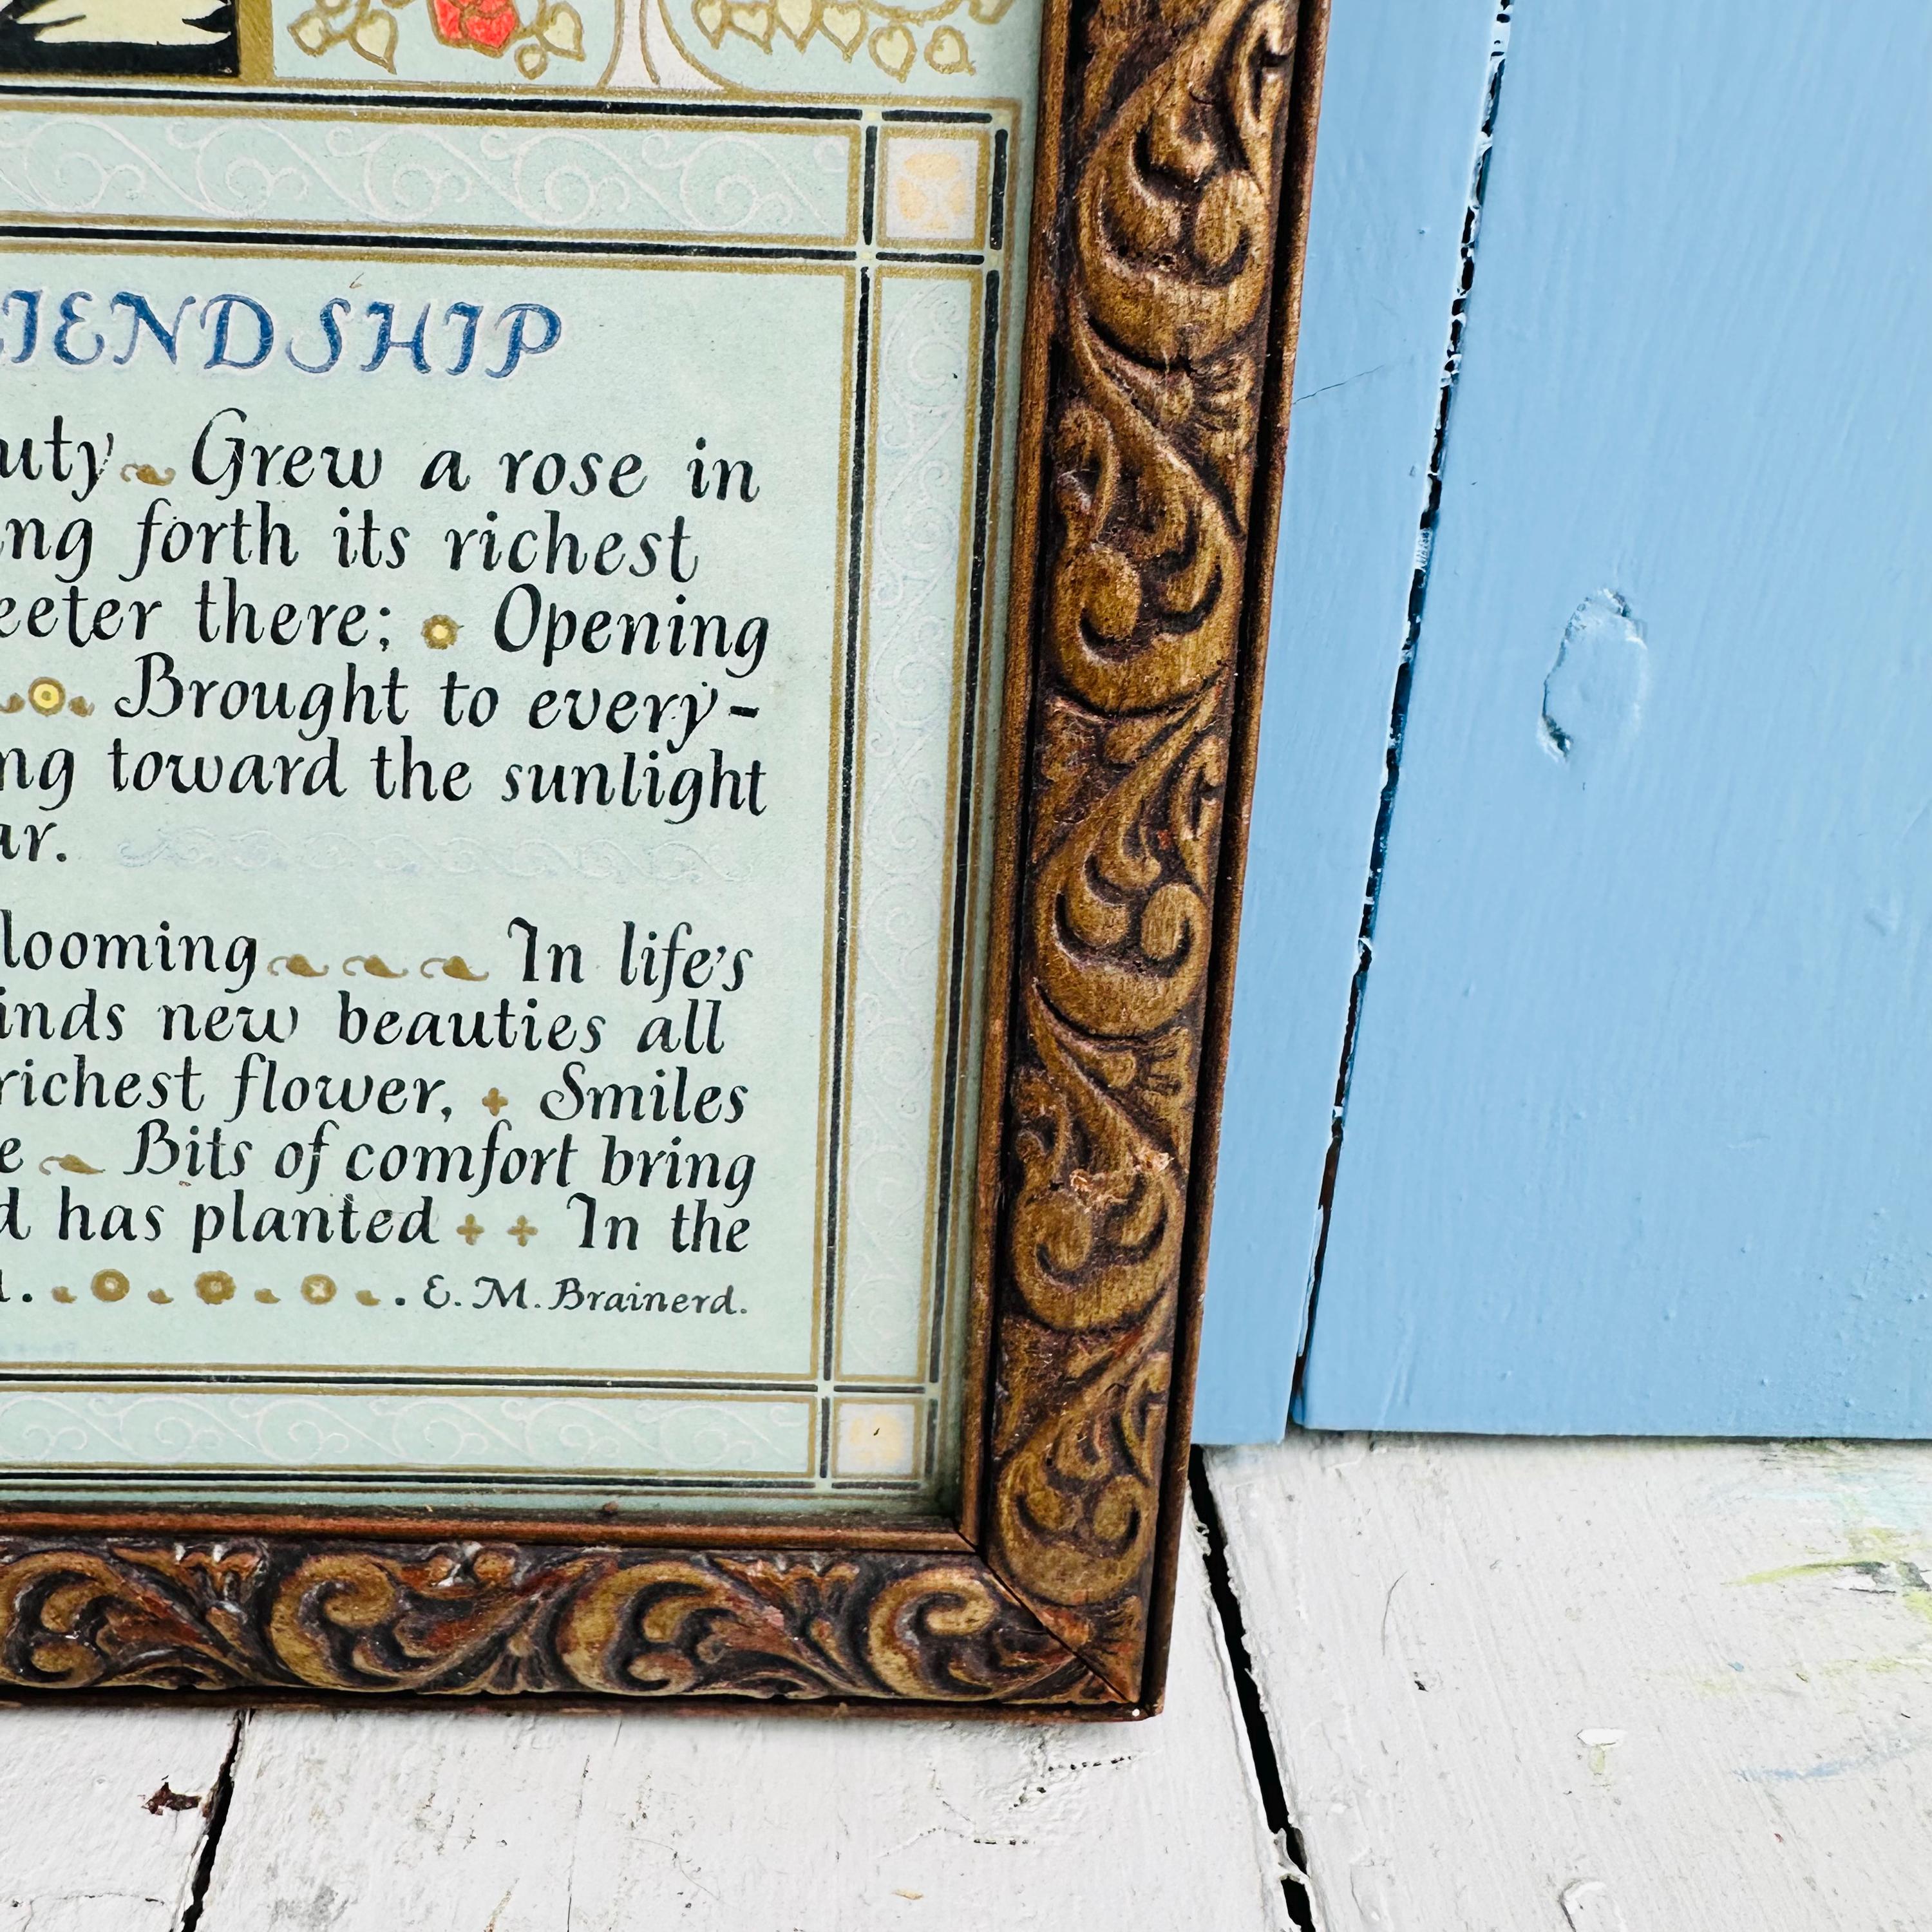 IENDSHIP
uty Grew a rose in
ng forth its richest
eeter there; Opening
Brought to every-
ng toward the sunlight
ar.
looming In life's
inds new beauties all
richest flower, Smiles
e Bits of comfort bring
d has planted In the
. . E. M. Brainerd.